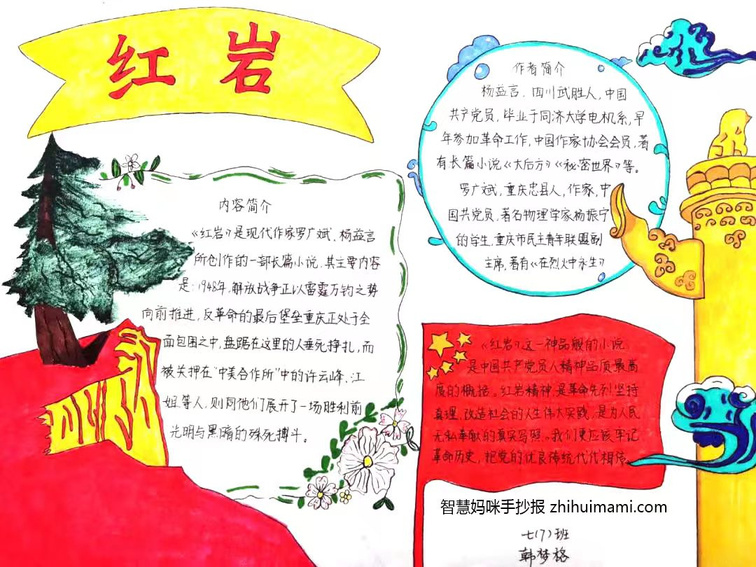 红岩
作者简介
杨益言,四川武胜人,中国
共产党员,毕业于同济大学电机系,早
年参加革命工作,中国作家协会会员,著
有长篇小说《大后方》《秘密世界》等。
罗广斌,重庆忠县人,作家,中
国共党员,著名物理学家杨振宁
的学生,重庆市民主青年联盟副
主席,著有《在烈火中永生》
内容简介
《红岩》是现代作家罗广斌,杨益言
所创作的一部长篇小说,其主要内容
是:1948年,解放战争正以雷霆万钧之势
向前推进,反革命的最后堡垒重庆正处于全
面包围之中,盘踞在这里的人垂死挣扎,而
被关押在“中美合作所”中的许云峰、江
姐等人,则同他们展开了一场胜利前
光明与黑暗的殊死搏斗。
《红岩》这一神品般的小说
是中国共产党员人精神品质最高
度的概括。红岩精神是革命先烈坚持
真理、改造社会的人生伟大实践,是为人民
无私奉献的真实写照。我们更应该牢记
革命历史,把党的优良传统代代相传。
智慧妈咪手抄报 zhihuimami.com
七(7)班
韩梦格